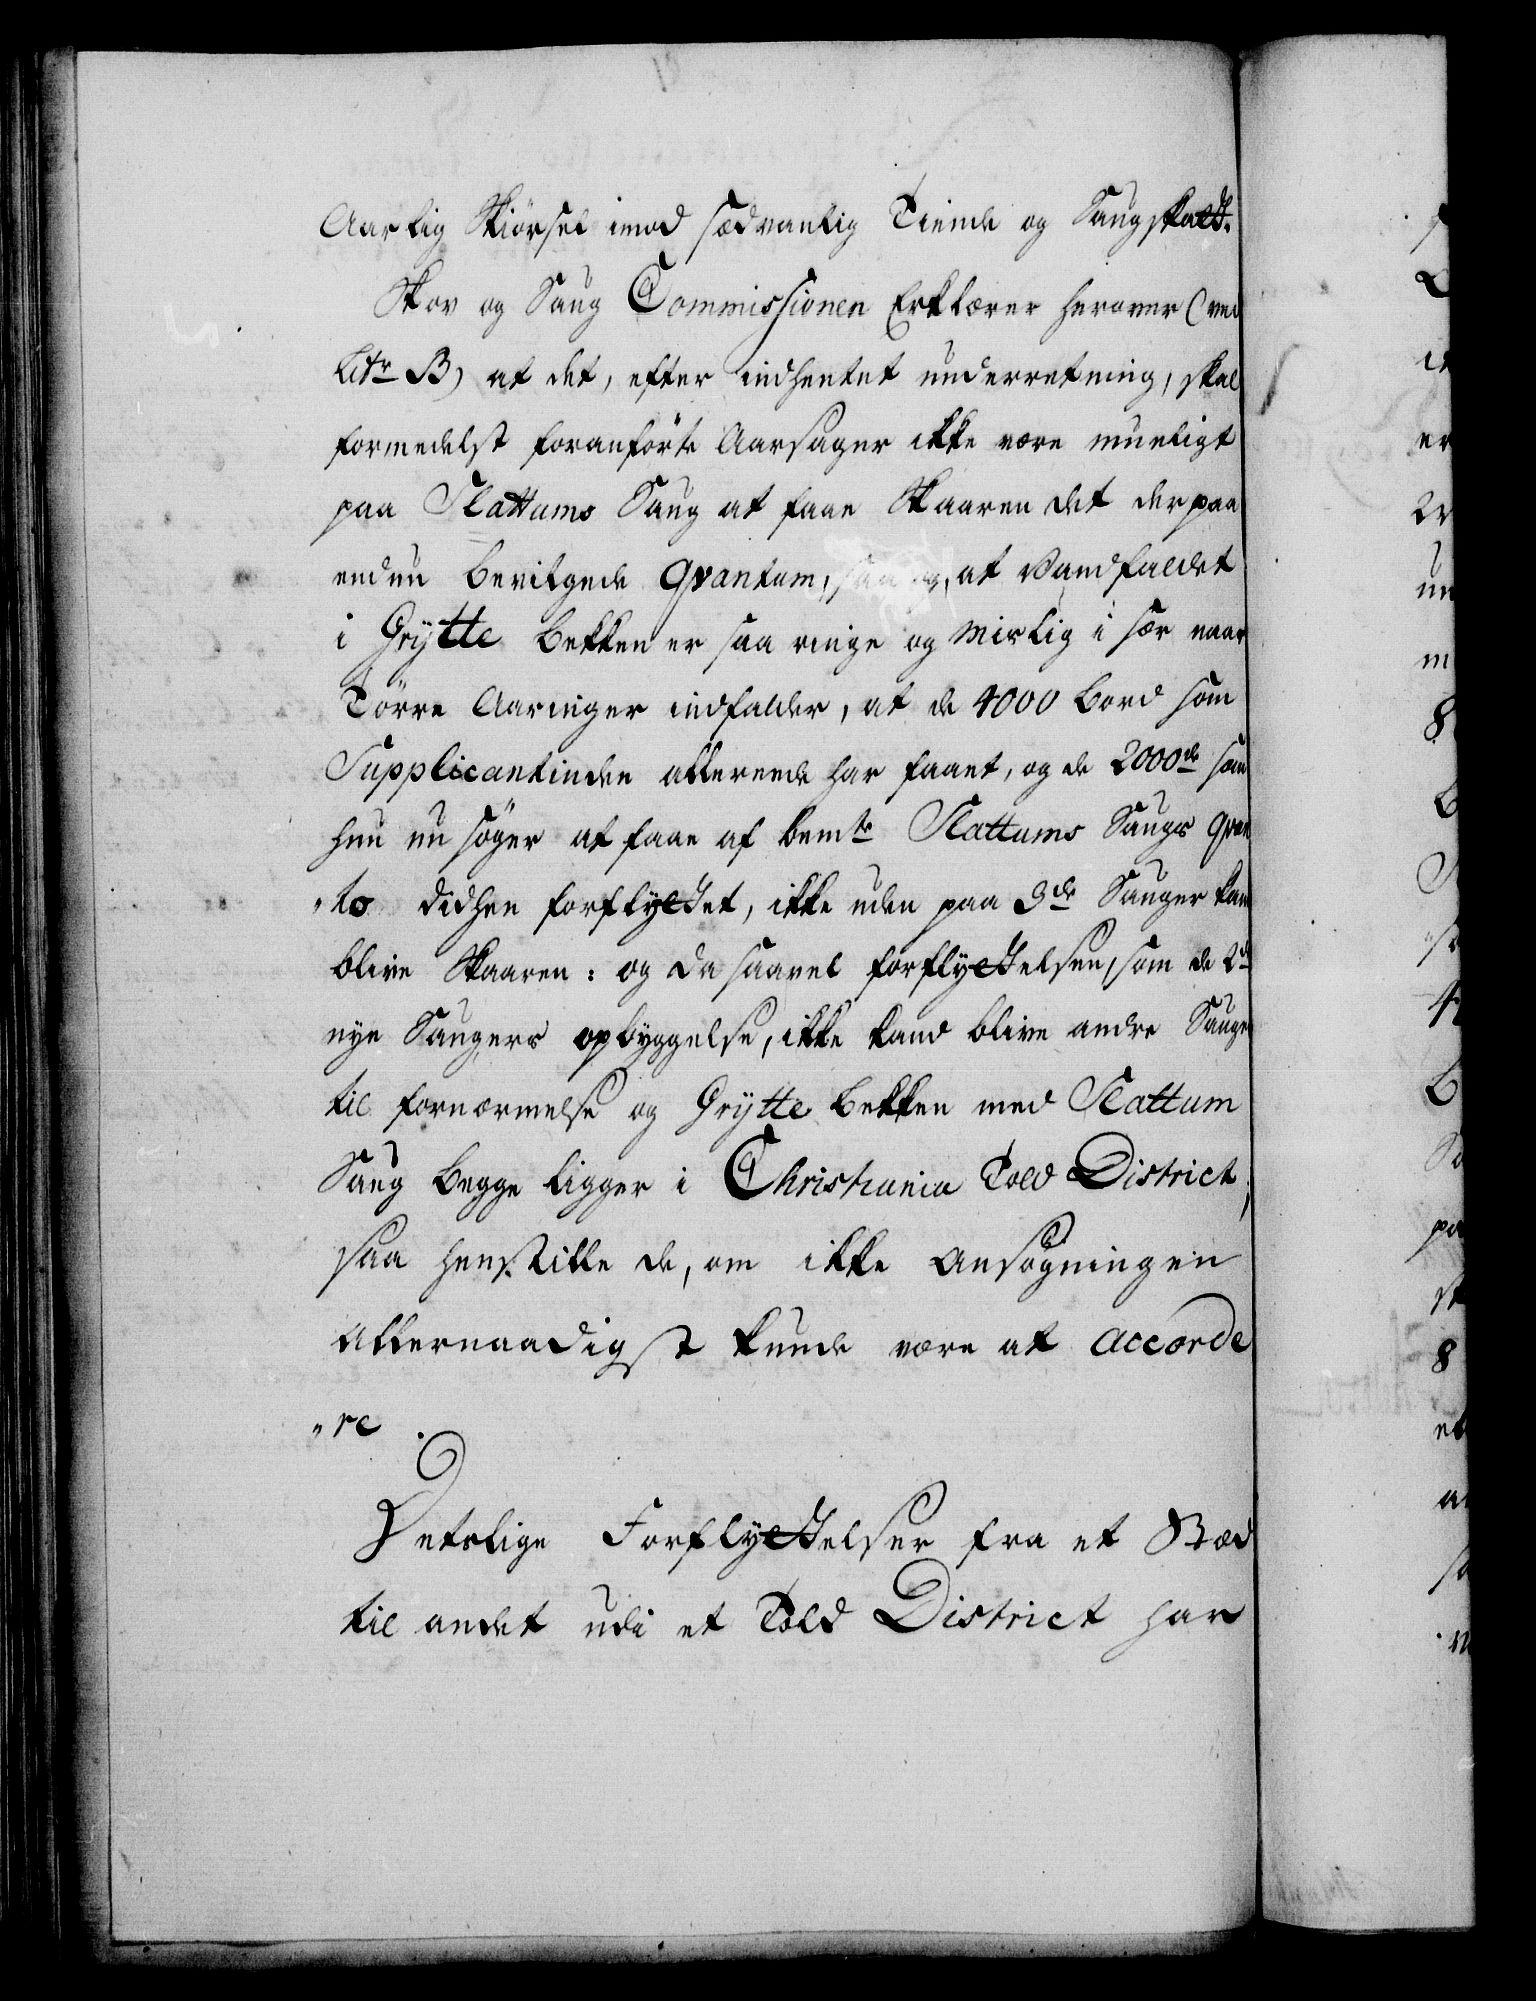 Aarlig Skiørsel imod sædvanlig Tiende og Saugskatt.
Skov og Saug Commissionen Erklærer herover (ved
Litr B) at det, efter indhentet underretning, skal
formedelst foranførte Aarsager ikke være mueligt
paa Slattums Saug at faae Skaaren det derpaa
endnu bevilgede Qvantum, saa og, at Vandfaldet
i Grÿtte Bekken er saa ringe og Mislig i sær naar
Tørre Aaringer indfalder, at de 4000 Bord som
Supplicantinden allereede har faaet, og de 2000de som
hun nu søger at faae af bemte Slattums Saugs Qvan
„to didhen forflyttet, ikke uden paa 3de Sauger kan
blive Skaaren: og da saavel forflyttelsen, som de 2de
nye Saugers opbyggelse, ikke kand blive andre Sauge
til fornærmelse og Grÿtte Bekken med Slattum
Saug begge ligger i Christiania Told District,
saa henstille de, om ikke Ansøgningen
Allernaadigst kunde være at accorde
„re.
Deslige Forflyttelser fra et Stæd
til andet udi et Told District har